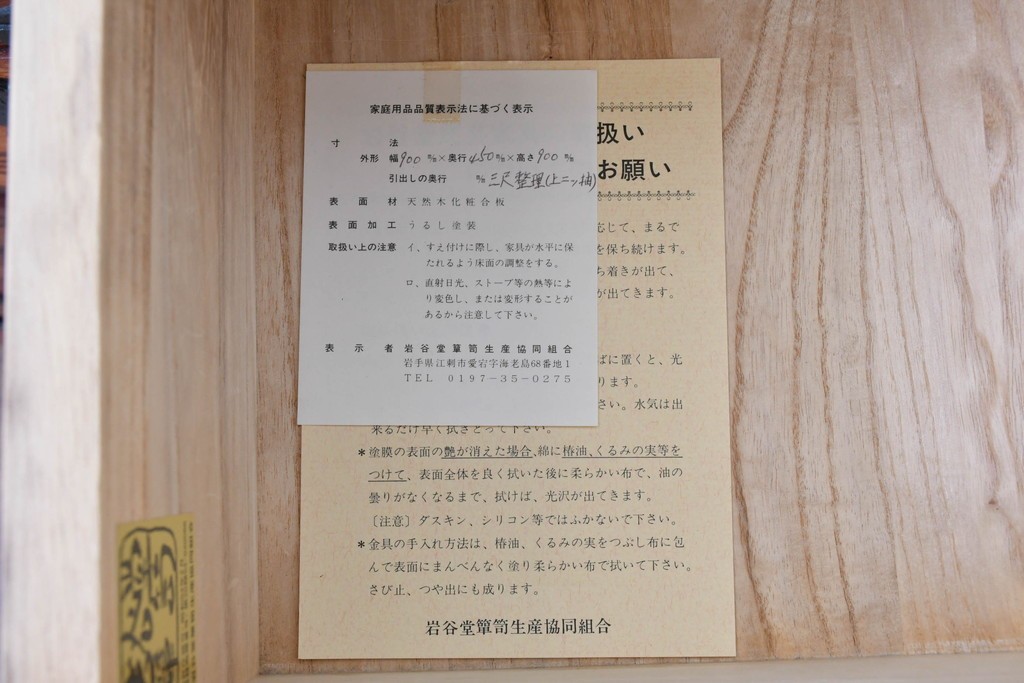 家庭用品品質表示法に基づく表示
寸法
外形 幅900m/m×奥行450m/m×高さ900m/m
引出しの奥行 m/m 三尺整理(上二ッ抽)
表面材 天然木化粧合板
表面加工 うるし塗装
取扱い上の注意 イ、すえ付けに際し、家具が水平に保
たれるよう床面の調整をする。
ロ、直射日光、ストーブ等の熱等によ
り変色し、または変形することが
あるから注意して下さい。
表示者 岩谷堂簞笥生産協同組合
岩手県江刺市愛宕字海老島68番地1
TEL 0197-35-0275
扱い
お願い
応じて、まるで
を保ち続けます。
ち着きが出て、
が出てきます。
ばに置くと、光
ります。
さい。水気は出
来るだけ早く拭きとって下さい。
*塗膜の表面の艶が消えた場合、綿に椿油、くるみの実等を
つけて、表面全体を良く拭いた後に柔らかい布で、油の
曇りがなくなるまで、拭けば、光沢が出てきます。
〔注意〕ダスキン、シリコン等ではふかないで下さい。
*金具の手入れ方法は、椿油、くるみの実をつぶし布に包
んで表面にまんべんなく塗り柔らかい布で拭いて下さい。
さび止、つや出にも成ります。
岩谷堂簞笥生産協同組合